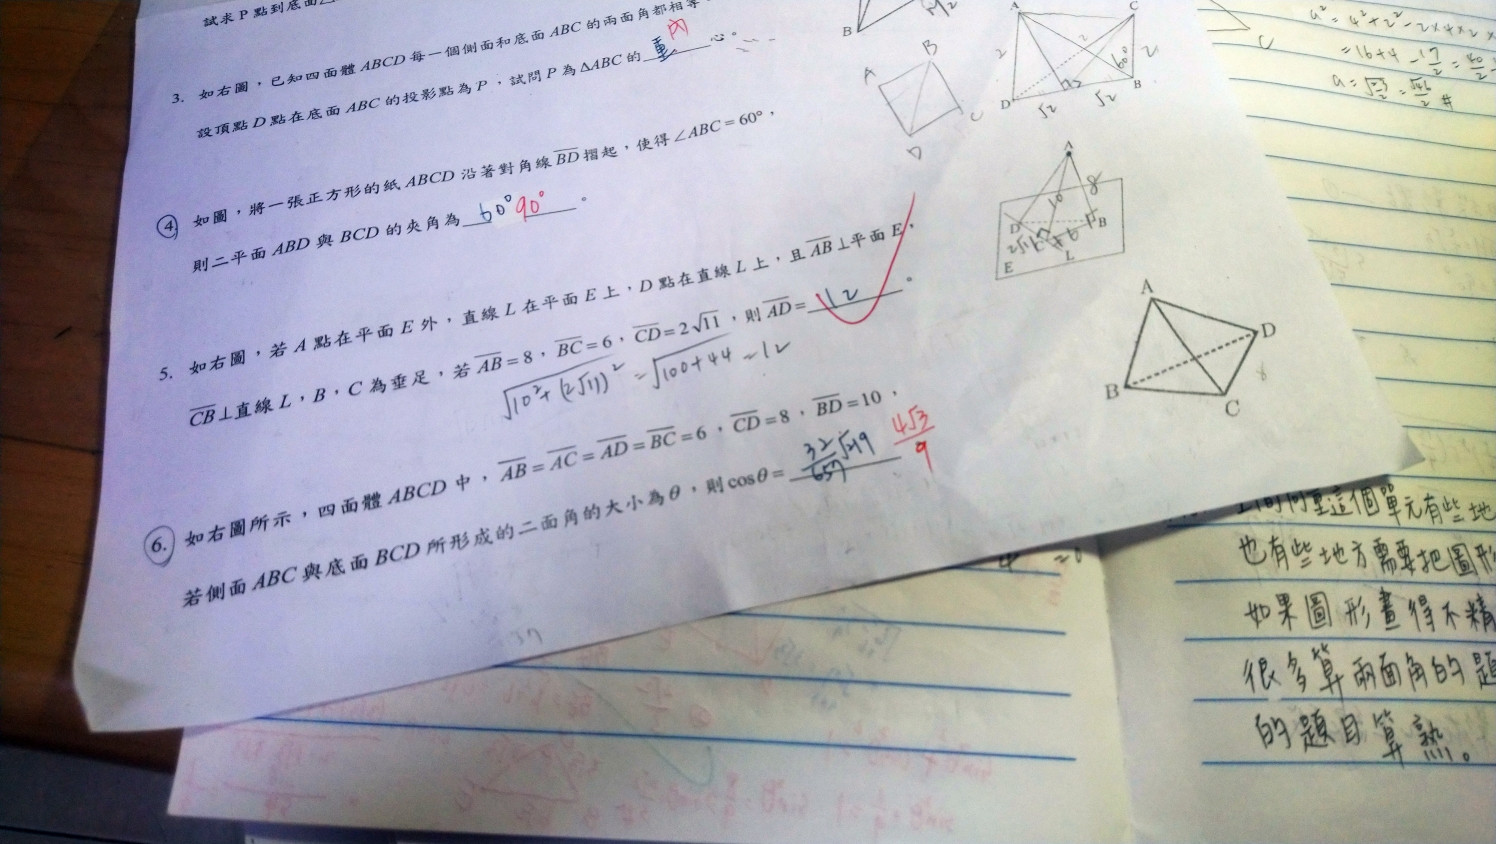 試求 P 點到底面
3. 如右圖，已知四面體 ABCD 每一個側面和底面 ABC 的兩面角都相等
設頂點 D 點在底面 ABC 的投影點為 P，試問 P 為 ΔABC 的 重 內 心。
④ 如圖，將一張正方形的紙 ABCD 沿著對角線 BD 摺起，使得∠ABC = 60°，
則二平面 ABD 與 BCD 的夾角為 60° 90° 。
5. 如右圖，若 A 點在平面 E 外，直線 L 在平面 E 上，D 點在直線 L 上，且 AB ⊥平面 E，
CB ⊥直線 L，B，C 為垂足，若 AB = 8，BC = 6，CD = 2√11，則 AD = 12 。
√10²+(2√11)² = √100+44 = 12
⑥. 如右圖所示，四面體 ABCD 中，AB = AC = AD = BC = 6，CD = 8，BD = 10，
若側面 ABC 與底面 BCD 所形成的二面角的大小為 θ，則 cosθ = 32/657 √219 4√3/9
B
A
B
C
D
A
C
D
B
2
2
2
60°
√2
√2
A
8
10
D
B
6
E
L
A
B
C
D
C
a² = 4² + 2² - 2×4×2×
= 16+4 - 17/2 = 40/2
這個單元有些地
也有些地方需要把圖形
如果圖形畫得不精
很多算兩面角的題
的題目算熟。